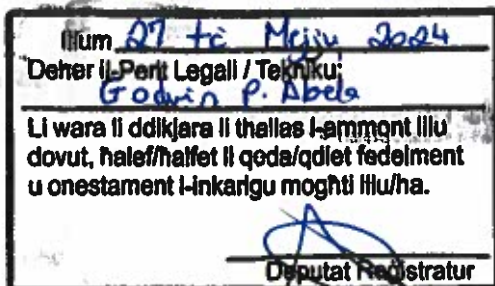 Illum 27 ta' Mejju 2024
Deher il-Perit Legali / Tekniku:
Godwin P. Abela
Li wara li ddikjara li tħallas l-ammont lilu
dovut, ħalef/ħalfet li qeda/qdiet fedelment
u onestament l-inkarigu mogħti lilu/ha.
Deputat Reġistratur